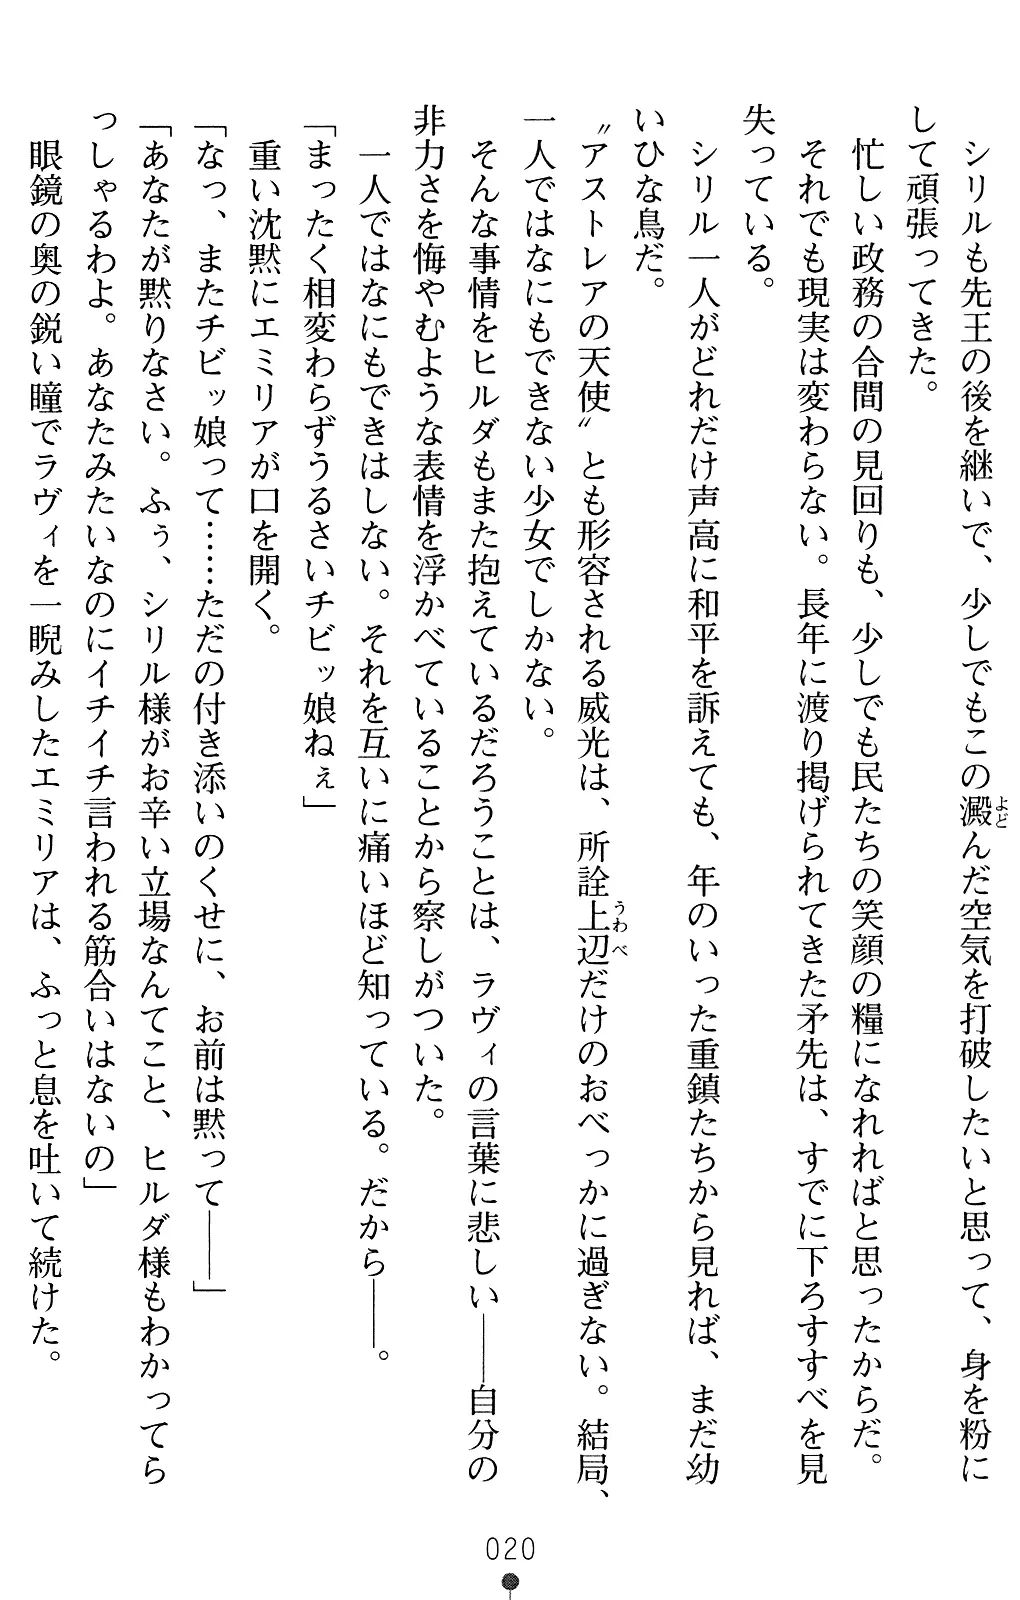 シリルも先王の後を継いで、少しでもこの澱んだ空気を打破したいと思って、身を粉に
して頑張ってきた。
忙しい政務の合間の見回りも、少しでも民たちの笑顔の糧になれればと思ったからだ。
それでも現実は変わらない。長年に渡り掲げられてきた矛先は、すでに下ろすすべを見
失っている。
シリル一人がどれだけ声高に和平を訴えても、年のいった重鎮たちから見れば、まだ幼
いひな鳥だ。
〝アストレアの天使〟とも形容される威光は、所詮上辺だけのおべっかに過ぎない。結局、
一人ではなにもできない少女でしかない。
そんな事情をヒルダもまた抱えているだろうことは、ラヴィの言葉に悲しい――自分の
非力さを悔やむような表情を浮かべていることから察しがついた。
一人ではなにもできはしない。それを互いに痛いほど知っている。だから――。
「まったく相変わらずうるさいチビッ娘ねぇ」
重い沈黙にエミリアが口を開く。
「なっ、またチビッ娘って……ただの付き添いのくせに、お前は黙って――」
「あなたが黙りなさい。ふぅ、シリル様がお辛い立場なんてこと、ヒルダ様もわかってら
っしゃるわよ。あなたみたいなのにイチイチ言われる筋合いはないの」
眼鏡の奥の鋭い瞳でラヴィを一睨みしたエミリアは、ふっと息を吐いて続けた。
よど
うわべ
020